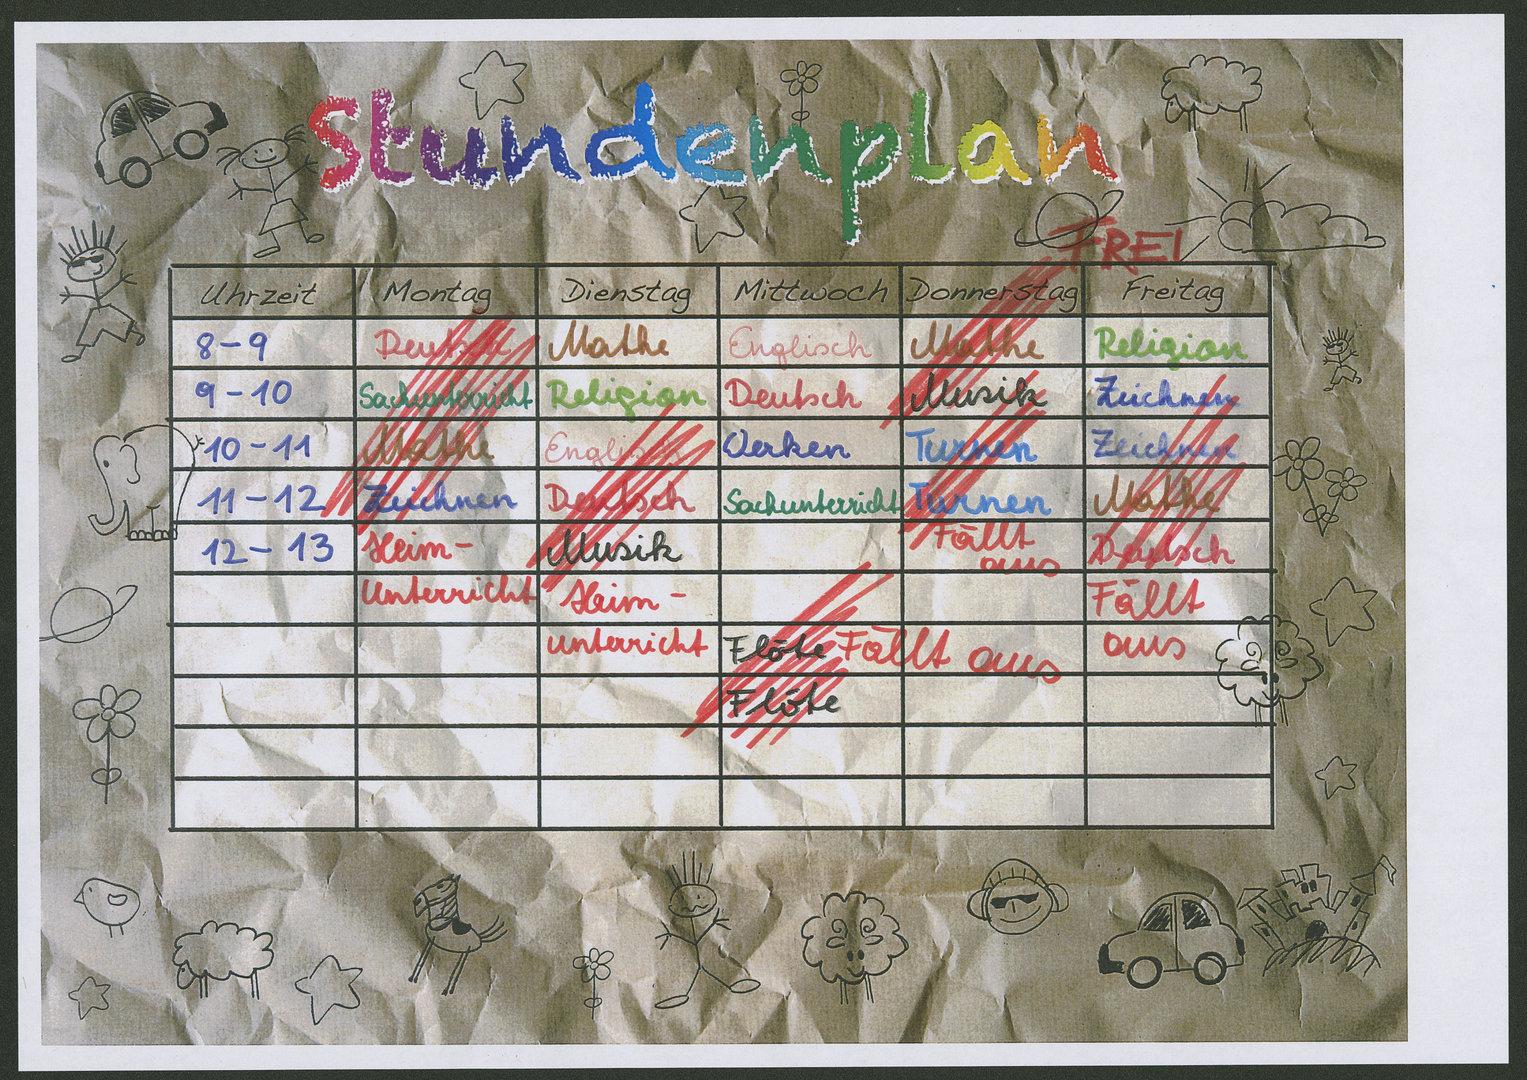 Stundenplan
FREI
Uhrzeit Montag Dienstag Mittwoch Donnerstag Freitag
8-9 Deutsch Mathe Englisch Mathe Religion
9-10 Sachunterricht Religion Deutsch Musik Zeichnen
10-11 Mathe Englisch Werken Turnen Zeichnen
11-12 Zeichnen Deutsch Sachunterricht Turnen Mathe
12-13 Heim- Musik Fällt aus Deutsch
Unterricht Heim- Fällt
unterricht Flöte Fällt aus aus
Flöte